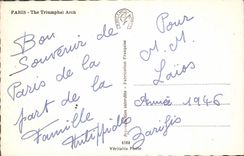 PARIS - The Triumphal Arch
Bon
Souvenir de
Paris de la
part de la
Famille
Antippides
Pour
M. M.
Laïos
Année 1946
Zarifis
Fabrication Française
Véritable Photo